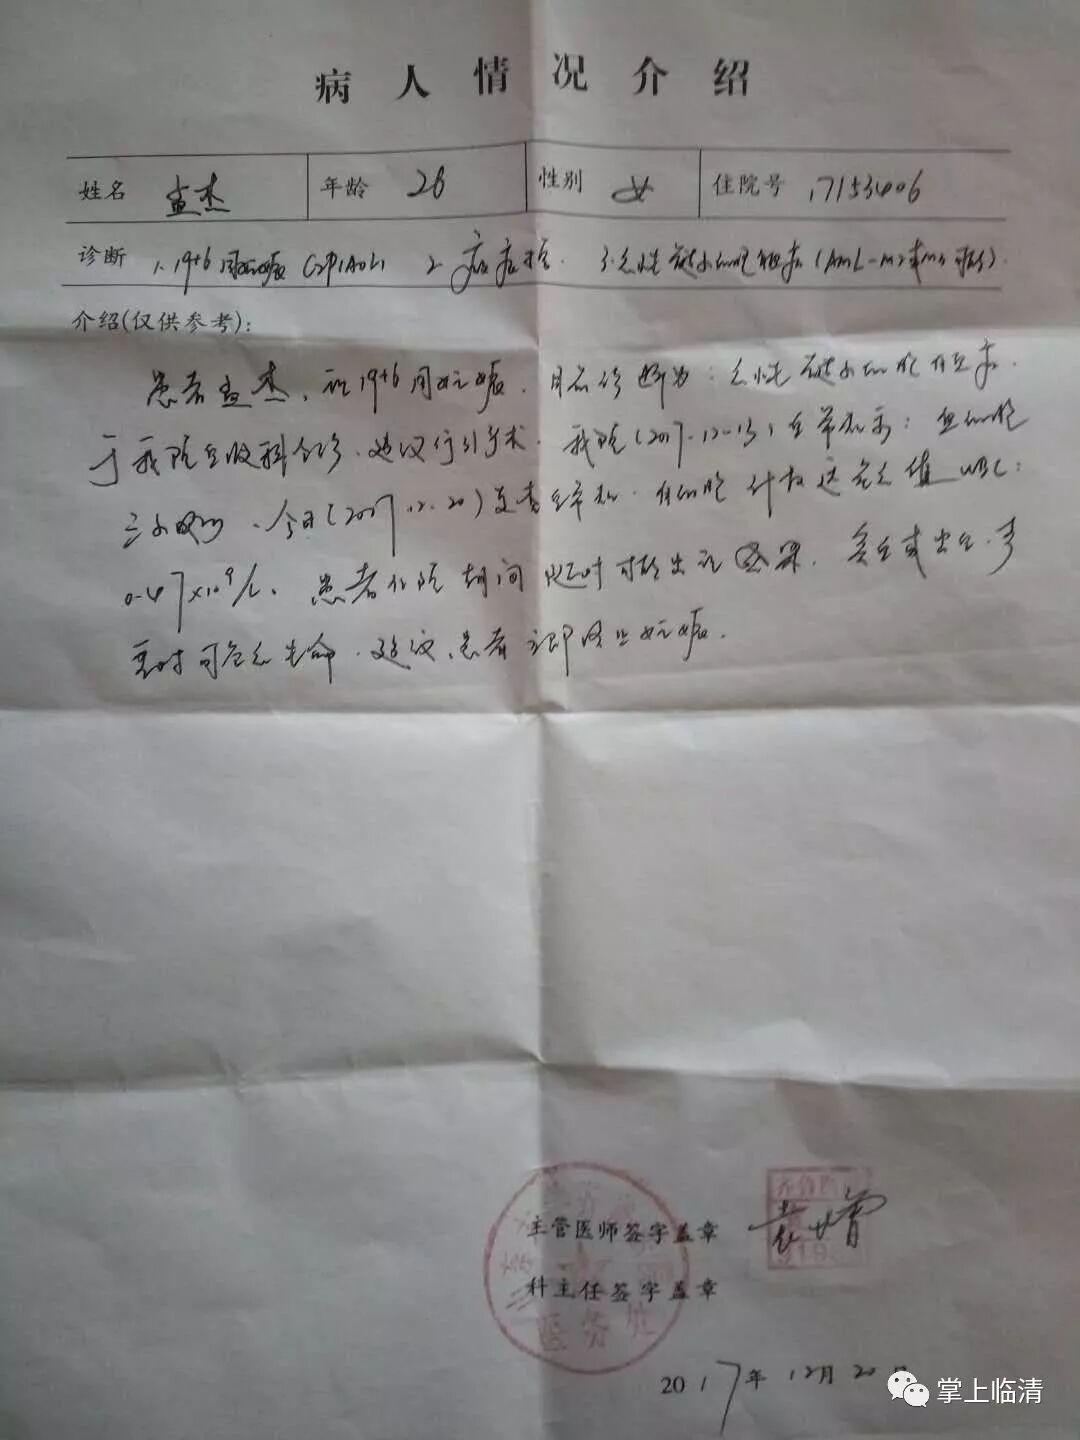 病人情况介绍
姓名 孟杰 年龄 26 性别 女 住院号 17153406
诊断 1. 19+6周妊娠 G2P1A0L1 2. 3. 急性髓系细胞白血病(AML-M2或M3可能).
介绍(仅供参考):
患者孟杰, 孕19+6周妊娠. 目前诊断为: 急性髓系细胞白血病.
于我院血液科会诊. 建议行引产术. 我院(2017-12-13)血常规示: 血细胞
三系减少. 今日(2017.12.20)复查血常规. 白细胞计数达危急值WBC:
0.47×10^9/L. 患者住院期间随时可能出现感染. 贫血或出血. 严
重时可危及生命. 建议患者立即终止妊娠.
主管医师签字盖章
科主任签字盖章
医务处
2017年12月20日
掌上临清